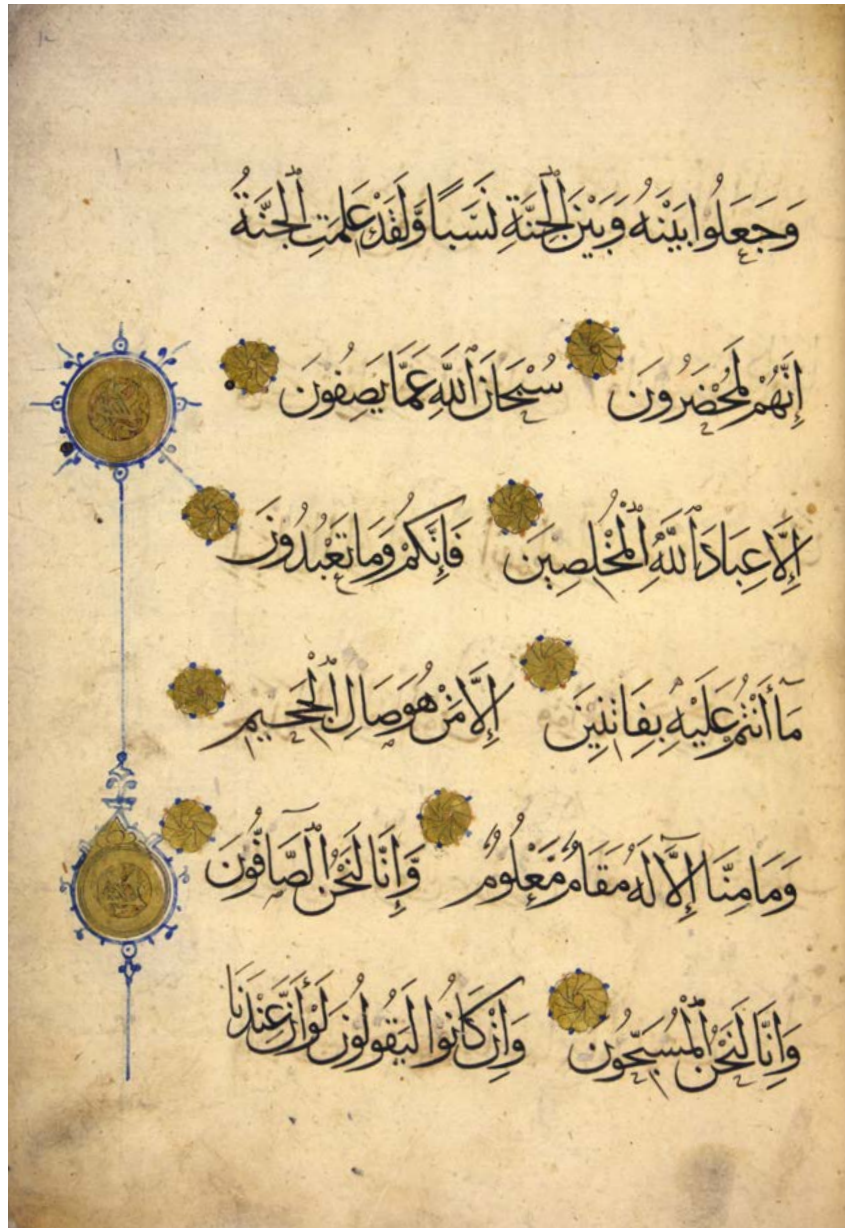 وَجَعَلُوا بَيْنَهُ وَبَيْنَ ٱلْجِنَّةِ نَسَبًا وَّلَقَدْ عَلِمَتِ ٱلْجِنَّةُ
إِنَّهُمْ لَمُحْضَرُونَ سُبْحَانَ ٱللَّهِ عَمَّا يَصِفُونَ
إِلَّا عِبَادَ ٱللَّهِ ٱلْمُخْلَصِينَ فَإِنَّكُمْ وَمَا تَعْبُدُونَ
مَآ أَنْتُمْ عَلَيْهِ بِفَاتِنِينَ إِلَّا مَنْ هُوَ صَالِ ٱلْجَحِيمِ
وَمَا مِنَّآ إِلَّا لَهُ مَقَامٌ مَّعْلُومٌ وَّإِنَّا لَنَحْنُ ٱلصَّآفُّونَ
وَإِنَّا لَنَحْنُ ٱلْمُسَبِّحُونَ وَإِنْ كَانُوا لَيَقُولُونَ لَوْ أَنَّ عِنْدَنَا